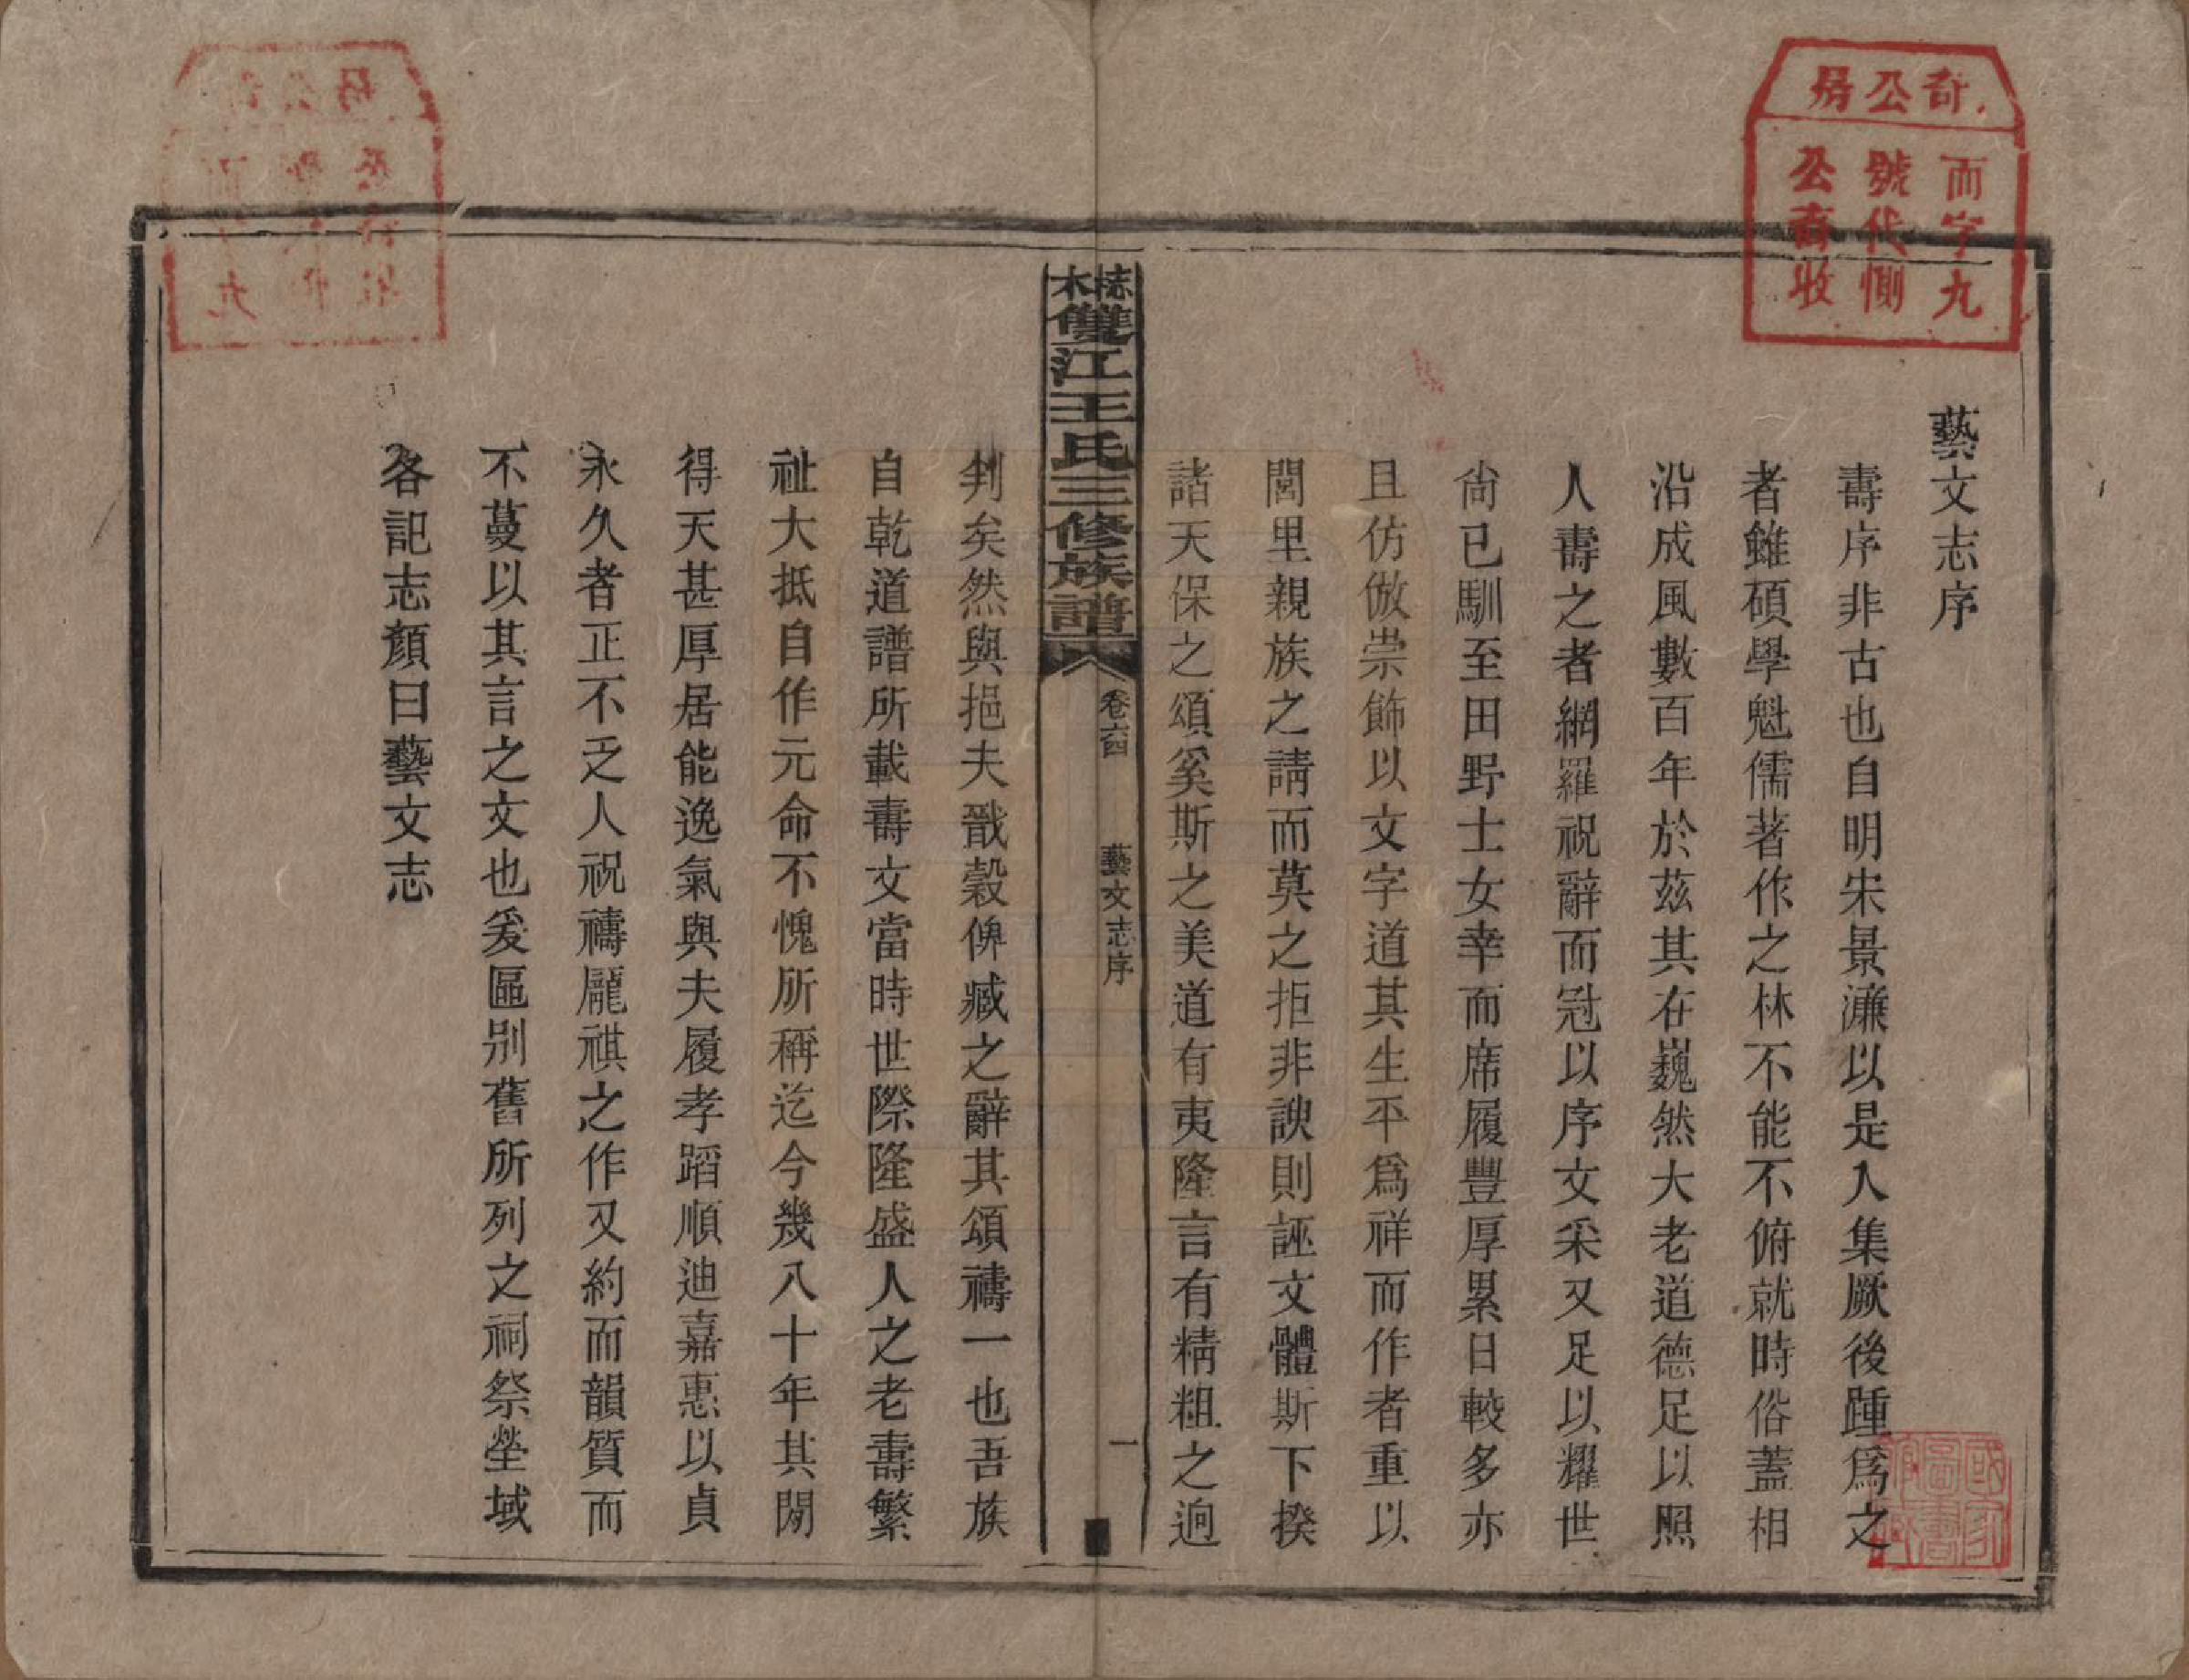 藝文志序
壽序非古也自明宋景濂以是入集厥後踵爲之
者雖碩學魁儒著作之林不能不俯就時俗蓋相
沿成風數百年於茲其在巍然大老道德足以照
人壽之者網羅祝辭而冠以序文采又足以耀世
尙已馴至田野士女幸而席履豐厚累日較多亦
且仿倣崇飾以文字道其生平爲祥而作者重以
閭里親族之請而莫之拒非諛則誣文體斯下揆
諸天保之頌奚斯之美道有夷隆言有精粗之逈
判矣然與挹夫戩穀俾臧之辭其頌禱一也吾族
自乾道譜所載壽文當時世際隆盛人之老壽繁
祉大抵自作元命不愧所稱迄今幾八十年其閒
得天甚厚居能逸氣與夫履孝蹈順迪嘉惠以貞
永久者正不乏人祝禱龎祺之作又約而韻質而
不蔓以其言之文也爰區别舊所列之祠祭塋域
各記志顏曰藝文志
雙江王氏三修族譜
卷六四
藝文志序
一
奇公房
而字九
號代惻
公裔收
國家圖書館藏